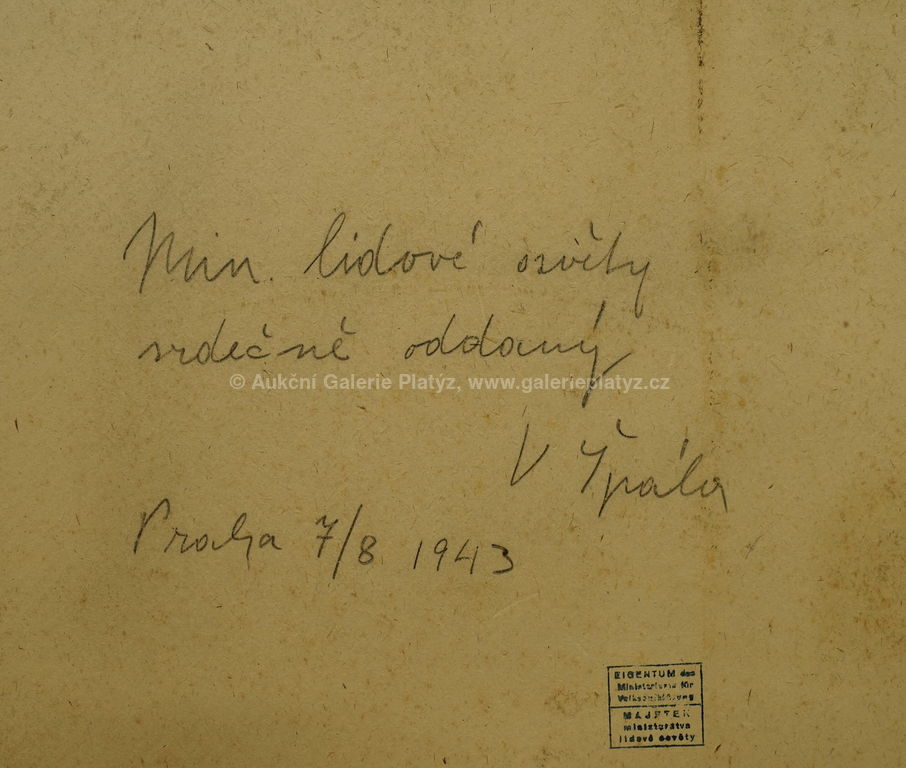 Min. lidové osvěty
srdečně oddaný
© Aukční Galerie Platýz, www.galerieplatyz.cz
V Špála
Praha 7/8 1943
EIGENTUM des
Ministeriums für
Volksaufklärung
MAJETEK
ministerstva
lidové osvěty